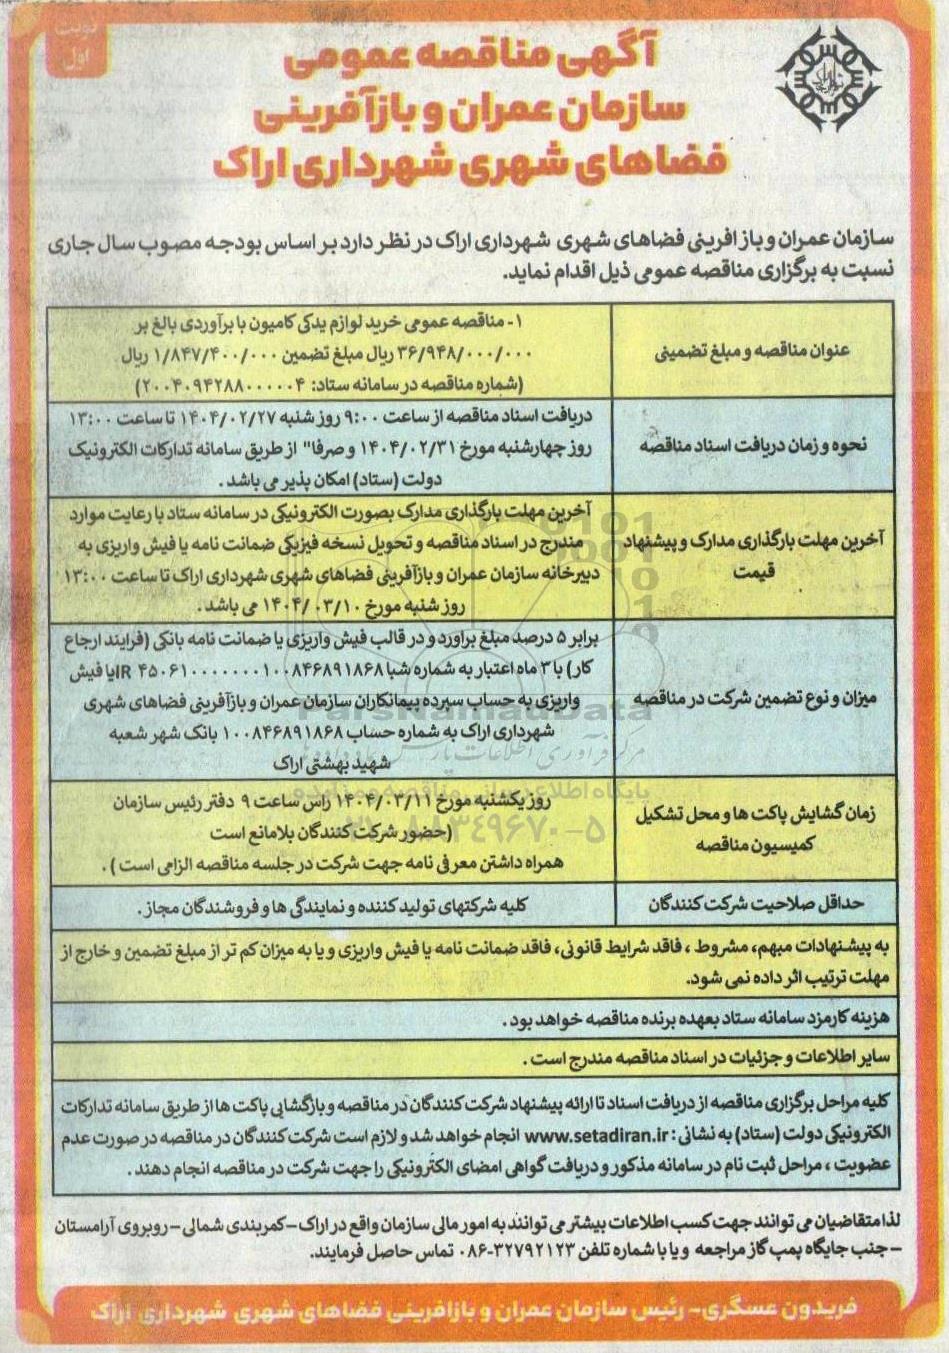 نوبت
اول
آگهی مناقصه عمومی
سازمان عمران و بازآفرینی
فضاهای شهری شهرداری اراک
سازمان عمران و باز افرینی فضاهای شهری شهرداری اراک در نظر دارد بر اساس بودجه مصوب سال جاری
نسبت به برگزاری مناقصه عمومی ذیل اقدام نماید.
عنوان مناقصه و مبلغ تضمینی
۱- مناقصه عمومی خرید لوازم یدکی کامیون با برآوردی بالغ بر
۳۶/۹۴۸/۰۰۰/۰۰۰ ریال مبلغ تضمین ۱/۸۴۷/۴۰۰/۰۰۰ ریال
(شماره مناقصه در سامانه ستاد: ۲۰۰۴۰۹۴۲۸۸۰۰۰۰۰۴)
نحوه و زمان دریافت اسناد مناقصه
دریافت اسناد مناقصه از ساعت ۹:۰۰ روز شنبه ۱۴۰۴/۰۲/۲۷ تا ساعت ۱۳:۰۰
روز چهارشنبه مورخ ۱۴۰۴/۰۲/۳۱ و صرفا" از طریق سامانه تدارکات الکترونیک
دولت (ستاد) امکان پذیر می باشد .
آخرین مهلت بارگذاری مدارک و پیشنهاد
قیمت
آخرین مهلت بارگذاری مدارک بصورت الکترونیکی در سامانه ستاد با رعایت موارد
مندرج در اسناد مناقصه و تحویل نسخه فیزیکی ضمانت نامه یا فیش واریزی به
دبیرخانه سازمان عمران و بازآفرینی فضاهای شهری شهرداری اراک تا ساعت ۱۳:۰۰
روز شنبه مورخ ۱۴۰۴/۰۳/۱۰ می باشد .
میزان و نوع تضمین شرکت در مناقصه
برابر ۵ درصد مبلغ براورد و در قالب فیش واریزی یا ضمانت نامه بانکی (فرایند ارجاع
کار) با ۳ ماه اعتبار به شماره شبا IR ۴۵۰۶۱۰۰۰۰۰۰۰۱۰۰۸۴۶۸۹۱۸۶۸ یا فیش
واریزی به حساب سپرده پیمانکاران سازمان عمران و بازآفرینی فضاهای شهری
شهرداری اراک به شماره حساب ۱۰۰۸۴۶۸۹۱۸۶۸ بانک شهر شعبه
شهید بهشتی اراک
زمان گشایش پاکت ها و محل تشکیل
کمیسیون مناقصه
روز یکشنبه مورخ ۱۴۰۴/۰۳/۱۱ راس ساعت ۹ دفتر رئیس سازمان
(حضور شرکت کنندگان بلامانع است
همراه داشتن معرفی نامه جهت شرکت در جلسه مناقصه الزامی است ) .
حداقل صلاحیت شرکت کنندگان
کلیه شرکتهای تولید کننده و نمایندگی ها و فروشندگان مجاز .
به پیشنهادات مبهم، مشروط ، فاقد شرایط قانونی، فاقد ضمانت نامه یا فیش واریزی و یا به میزان کم تر از مبلغ تضمین و خارج از
مهلت ترتیب اثر داده نمی شود.
هزینه کارمزد سامانه ستاد بعهده برنده مناقصه خواهد بود .
سایر اطلاعات و جزئیات در اسناد مناقصه مندرج است .
کلیه مراحل برگزاری مناقصه از دریافت اسناد تا ارائه پیشنهاد شرکت کنندگان در مناقصه و بازگشایی پاکت ها از طریق سامانه تدارکات
الکترونیکی دولت (ستاد) به نشانی : www.setadiran.ir انجام خواهد شد و لازم است شرکت کنندگان در مناقصه در صورت عدم
عضویت ، مراحل ثبت نام در سامانه مذکور و دریافت گواهی امضای الکترونیکی را جهت شرکت در مناقصه انجام دهند .
لذا متقاضیان می توانند جهت کسب اطلاعات بیشتر می توانند به امور مالی سازمان واقع در اراک – کمربندی شمالی – روبروی آرامستان
– جنب جایگاه پمپ گاز مراجعه و یا با شماره تلفن ۳۲۷۹۲۱۲۳-۰۸۶ تماس حاصل فرمایند.
فریدون عسگری- رئیس سازمان عمران و بازافرینی فضاهای شهری شهرداری اراک
ParsNamadData
پایگاه اطلاع رسانی مناقصه و مزایده
۰۲۱-۸۸۳۴۹۶۷۰-۵